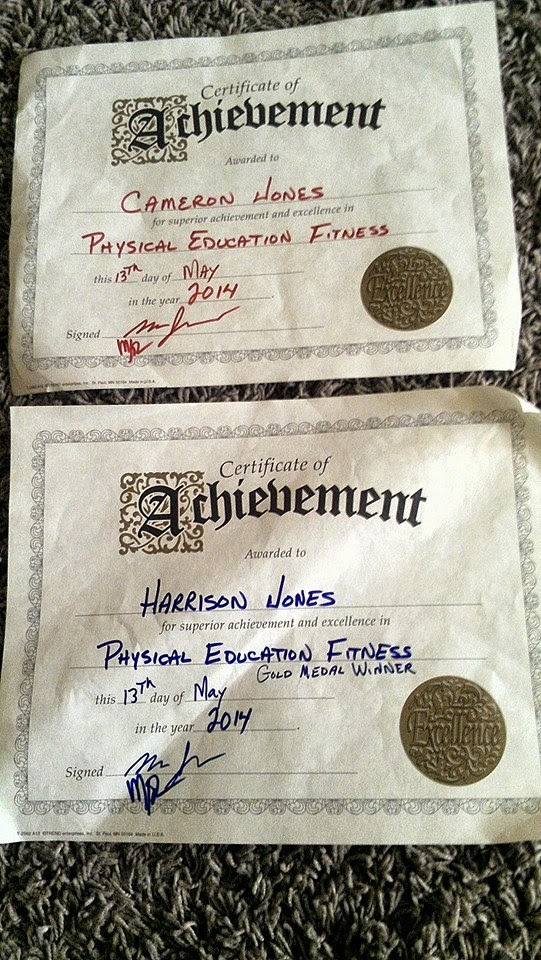 Certificate of
Achievement
Awarded to
CAMERON JONES
for superior achievement and excellence in
PHYSICAL EDUCATION FITNESS
this 13TH day of MAY
in the year 2014.
Excellence
Signed
Certificate of
Achievement
Awarded to
HARRISON JONES
for superior achievement and excellence in
PHYSICAL EDUCATION FITNESS
GOLD MEDAL WINNER
this 13TH day of May
in the year 2014.
Excellence
Signed
enterprises, Inc. St. Paul, MN Made in U.S.A.